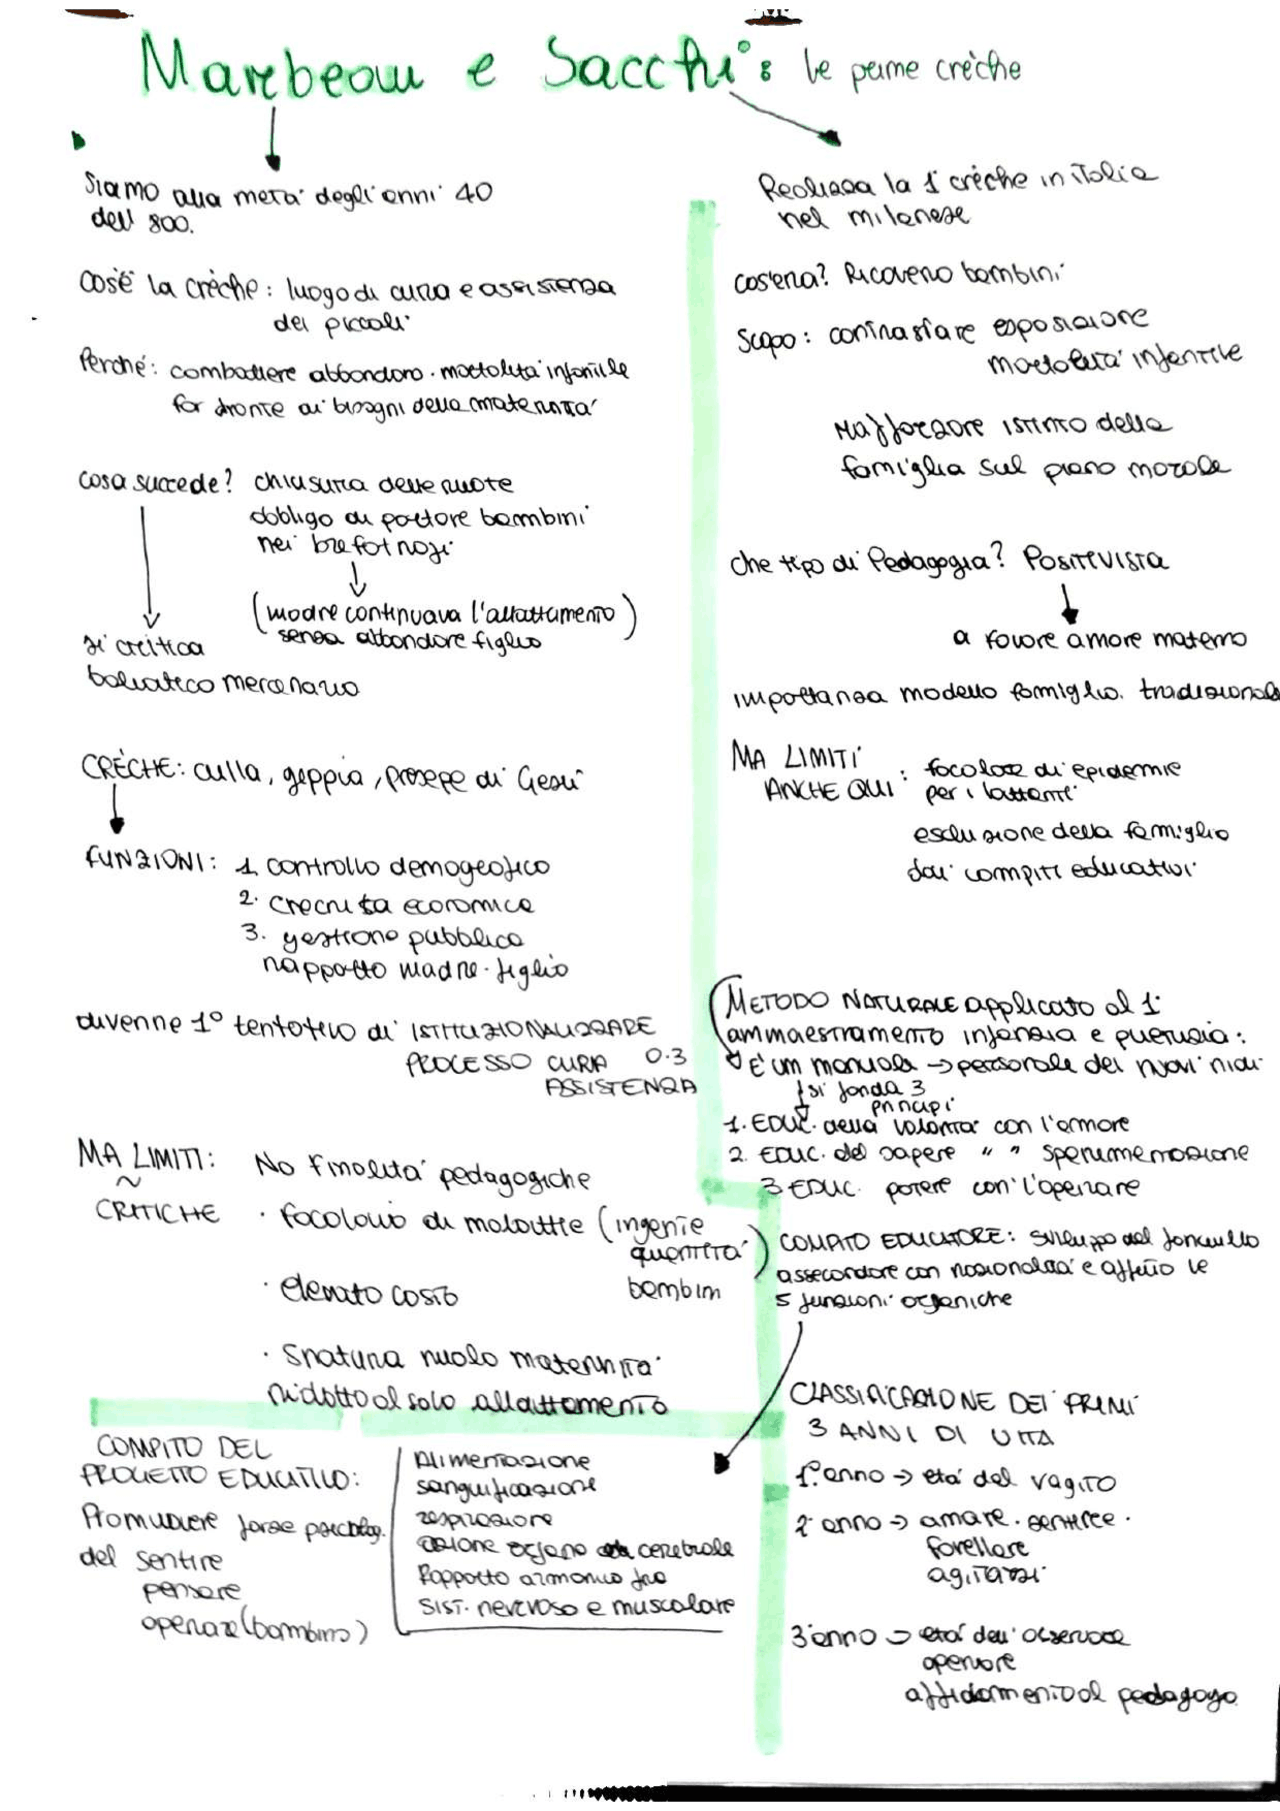 Marebeau e Sacchi: le prime crèche
Siamo alla metà degli anni 40
dell' 800.
Cos'è la crèche: luogo di cura e assistenza
dei piccoli
Perché: combattere abbandono. mortalità infantile
far fronte ai bisogni della maternità
cosa succede? chiusura delle ruote
obbligo di portare bambini
nei brefotrofi
(madre continuava l'allattamento)
senza abbandonare figlio
si critica
baliatico mercenario
CRÈCHE: culla, greppia, presepe di Gesù
FUNZIONI: 1. controllo demografico
2. crescita economica
3. gestione pubblica
rapporto madre-figlio
divenne 1° tentativo di ISTITUZIONALIZZARE
PROCESSO CURA 0.3
ASSISTENZA
MA LIMITI: No finalità pedagogiche
CRITICHE · focolaio di malattie (ingente
quantità
bambini)
· elevato costo
· snatura ruolo maternità
ridotto al solo allattamento
COMPITO DEL
PROGETTO EDUCATIVO:
Promuovere forze psicolog.
del sentire
pensare
operare (bambino)
Alimentazione
sanguificazione
respirazione
azione organo cerebrale
Rapporto armonico fra
SIST. nervoso e muscolare
Realizza la 1° crèche in italia
nel milanese
cos'era? Ricovero bambini
Scopo: contrastare esposizione
mortalità infantile
Rafforzare istinto della
famiglia sul piano morale
che tipo di Pedagogia? POSITIVISTA
a favore amore materno
importanza modello famiglia. tradizionale
MA LIMITI
ANCHE QUI: focolare di epidemie
per i lattanti
esclusione della famiglia
dai compiti educativi
METODO NATURALE applicato al 1°
ammaestramento infanzia e puerizia:
È un manuale → personale dei nuovi nidi
si fonda 3
principi
1. EDUC. della volontà con l'amore
2. EDUC. del sapere " " sperimentazione
3 EDUC. potere con l'operare
COMPITO EDUCATORE: sviluppo del fanciullo
assecondare con razionalità e affetto le
5 funzioni organiche
CLASSIFICAZIONE DEI PRIMI
3 ANNI DI VITA
1° anno → età del vagito
2° anno → amare. sentire.
favellare
agitarsi
3° anno → età dell'osservare
operare
affidamento al pedagogo